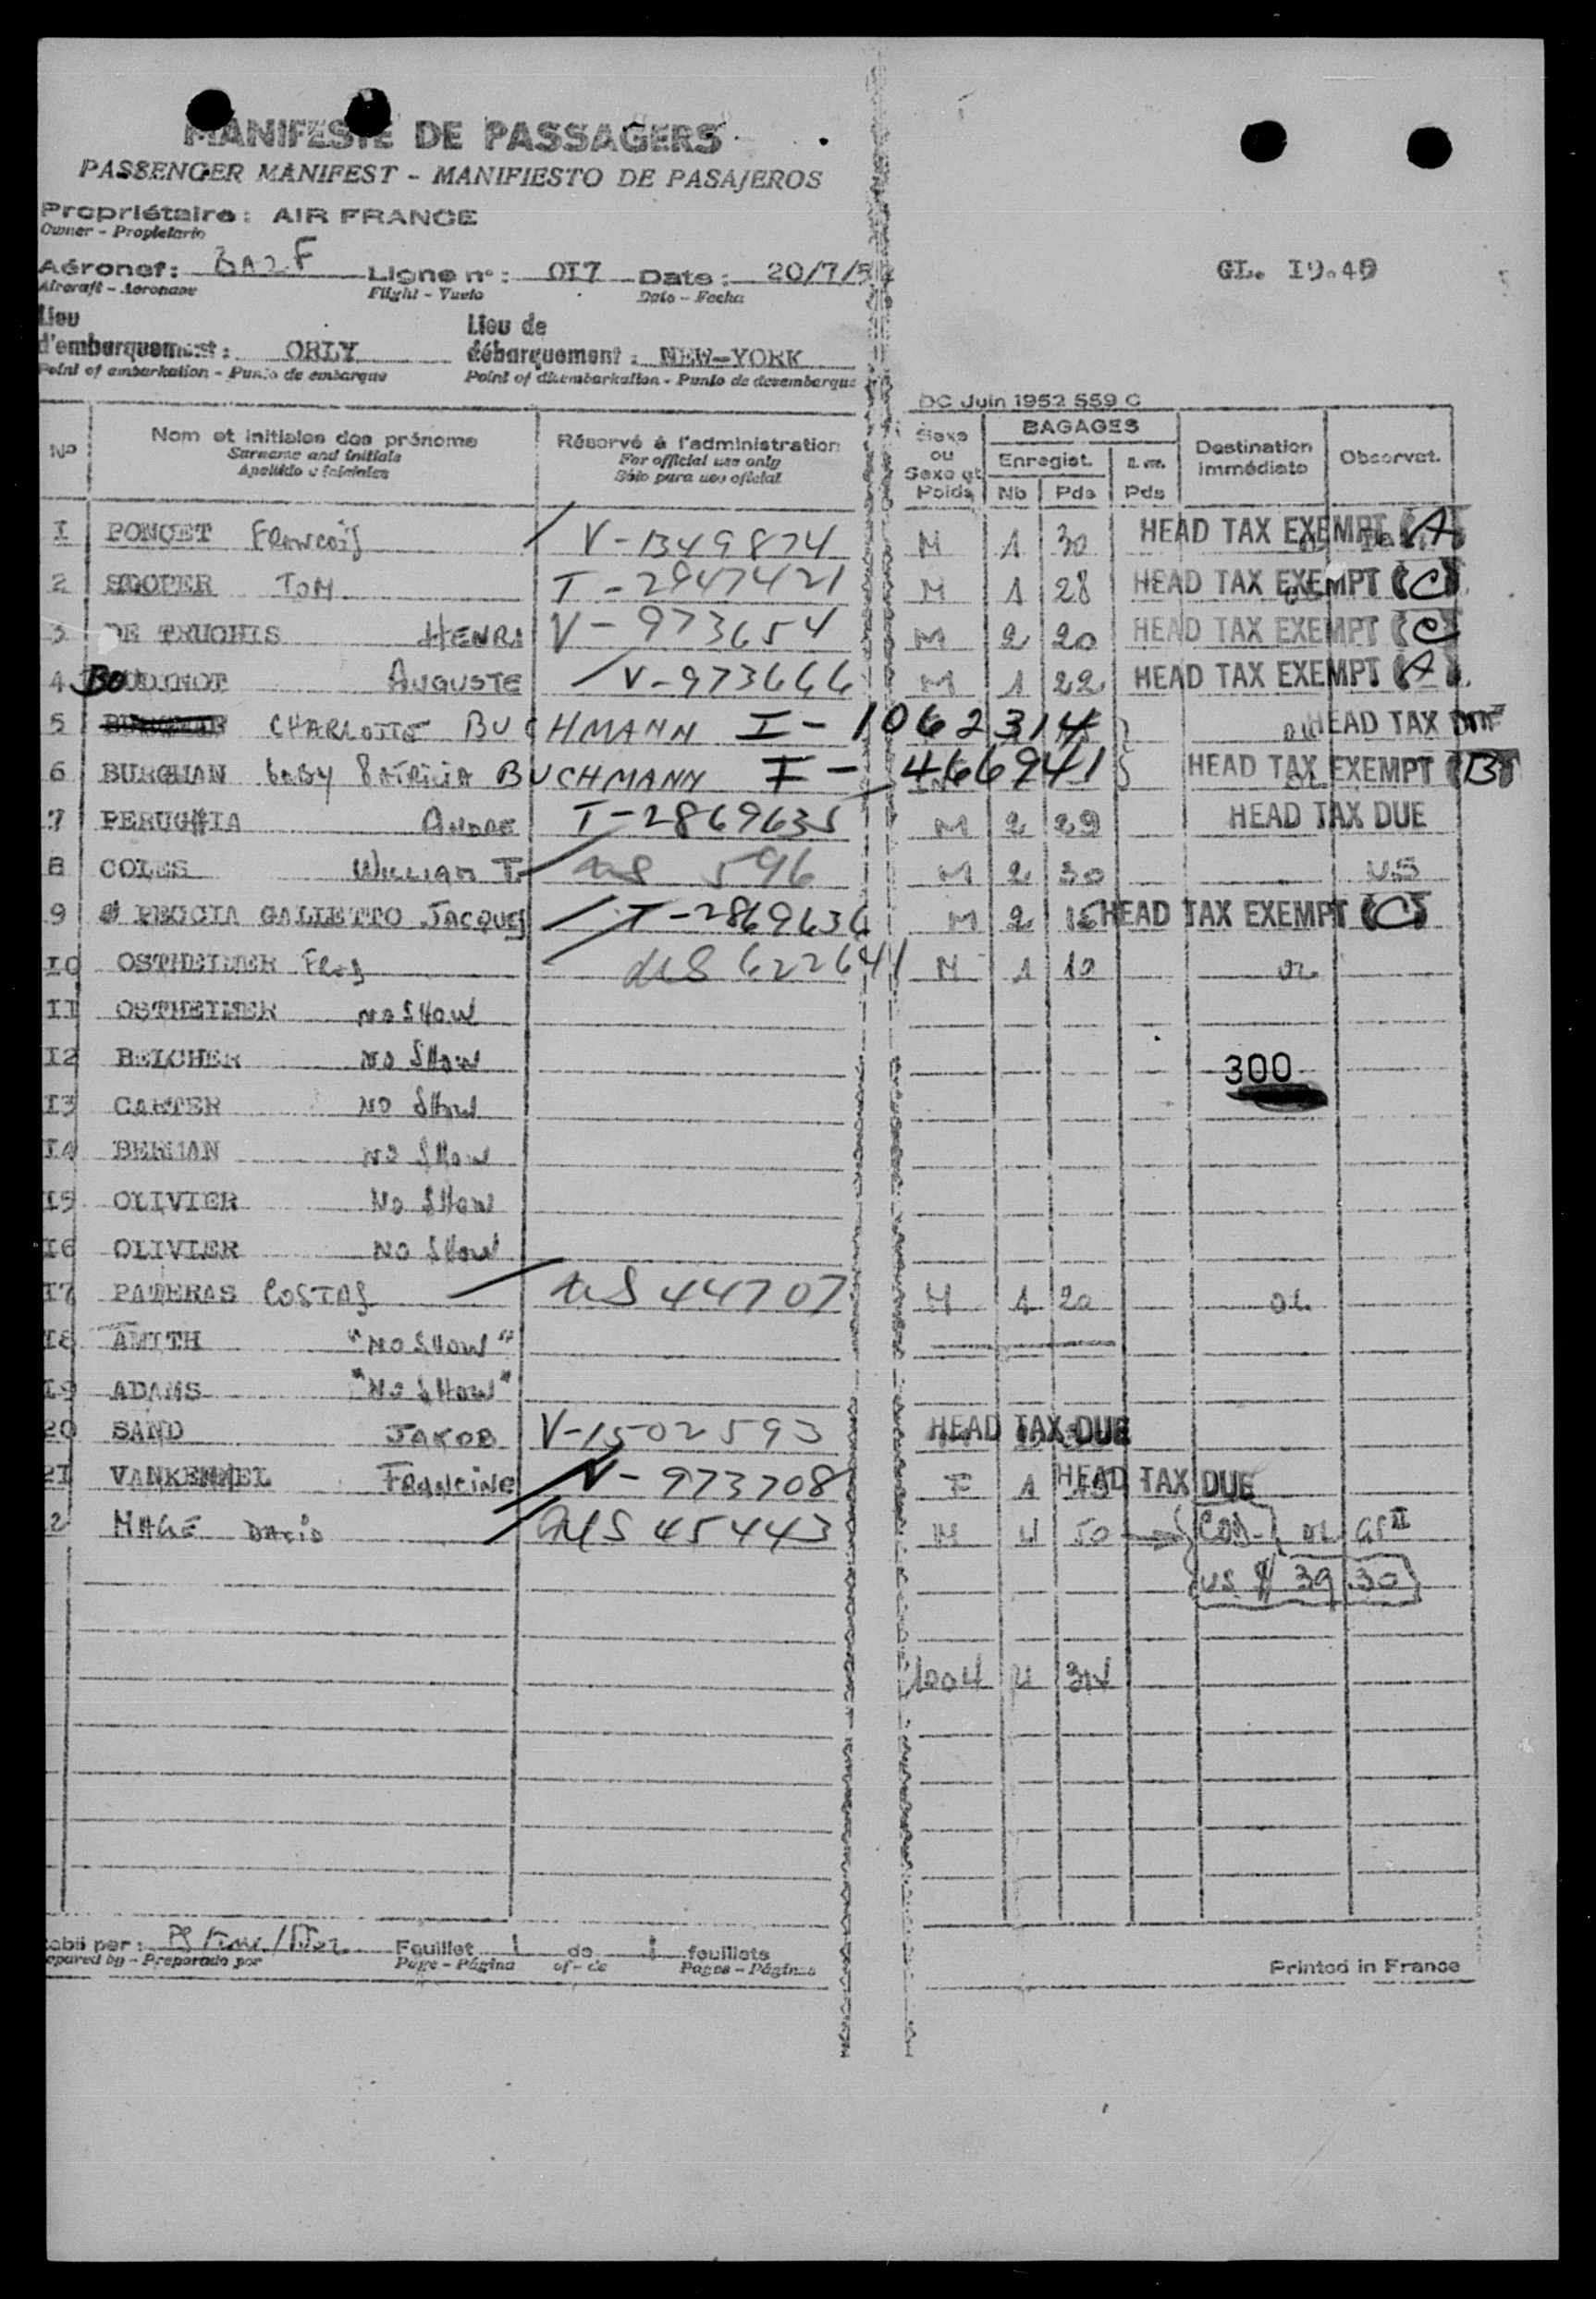 MANIFESTE DE PASSAGERS
PASSENGER MANIFEST - MANIFIESTO DE PASAJEROS
Propriétaire: AIR FRANCE
Owner - Propietario
Aéronef: BA2F Ligne n°: 017 Date: 20/7/5
Aircraft - Aeronave Flight - Vuelo Date - Fecha
GL. I9.49
Lieu d'embarquement: ORLY Lieu de débarquement: NEW-YORK
Point of embarkation - Punto de embarque Point of disembarkation - Punto de desembarque
DC Juin 1952 559 C
No Nom et initiales des prénoms Réservé à l'administration Sexe ou Sexe et Poids BAGAGES Destination immédiate Observat.
Surname and initials For official use only Enregist.
Apellido e iniciales Sólo para uso oficial Nb Pds Pds
I PONCET François V-1349874 M 1 30 HEAD TAX EXEMPT (A)
2 SCOOPER TOM T-2947421 M 1 28 HEAD TAX EXEMPT (C)
3 DE TRUCHIS HENRI V-973654 M 2 20 HEAD TAX EXEMPT (C)
4 BOUDINOT AUGUSTE V-973666 M 1 22 HEAD TAX EXEMPT (A)
5 CHARLOTTE BUCHMANN I-1062314 HEAD TAX
6 BURGHAN baby Patricia BUCHMANN I-466941 HEAD TAX EXEMPT (B)
7 PERUGIA ANDRE T-2869635 M 2 29 HEAD TAX DUE
8 COLES WILLIAM T. US 596 M 2 30 US
9 PECCIA GALLETTO JACQUES T-2869636 M 2 HEAD TAX EXEMPT (C)
10 OSTHEIMER US 622641 M 1 10
II OSTHEIMER NO SHOW
I2 BELCHER NO SHOW
300
I3 CARTER NO SHOW
I4 BERMAN NO SHOW
I5 OLIVIER NO SHOW
I6 OLIVIER NO SHOW
I7 PATERAS COSTAS US 44707 M 1 20
I8 AMITH "NO SHOW"
I9 ADAMS "NO SHOW"
20 SAND JAKOB V-1502593 HEAD TAX DUE
2I VANKEMMEL FRANCINE V-973708 F 1 HEAD TAX DUE
2 US 45443 M 4 50
US $ 39.30
Feuillet 1 de 1 feuillets
Prepared by - Preparado por Page - Página of - de Pages - Páginas
Printed in France